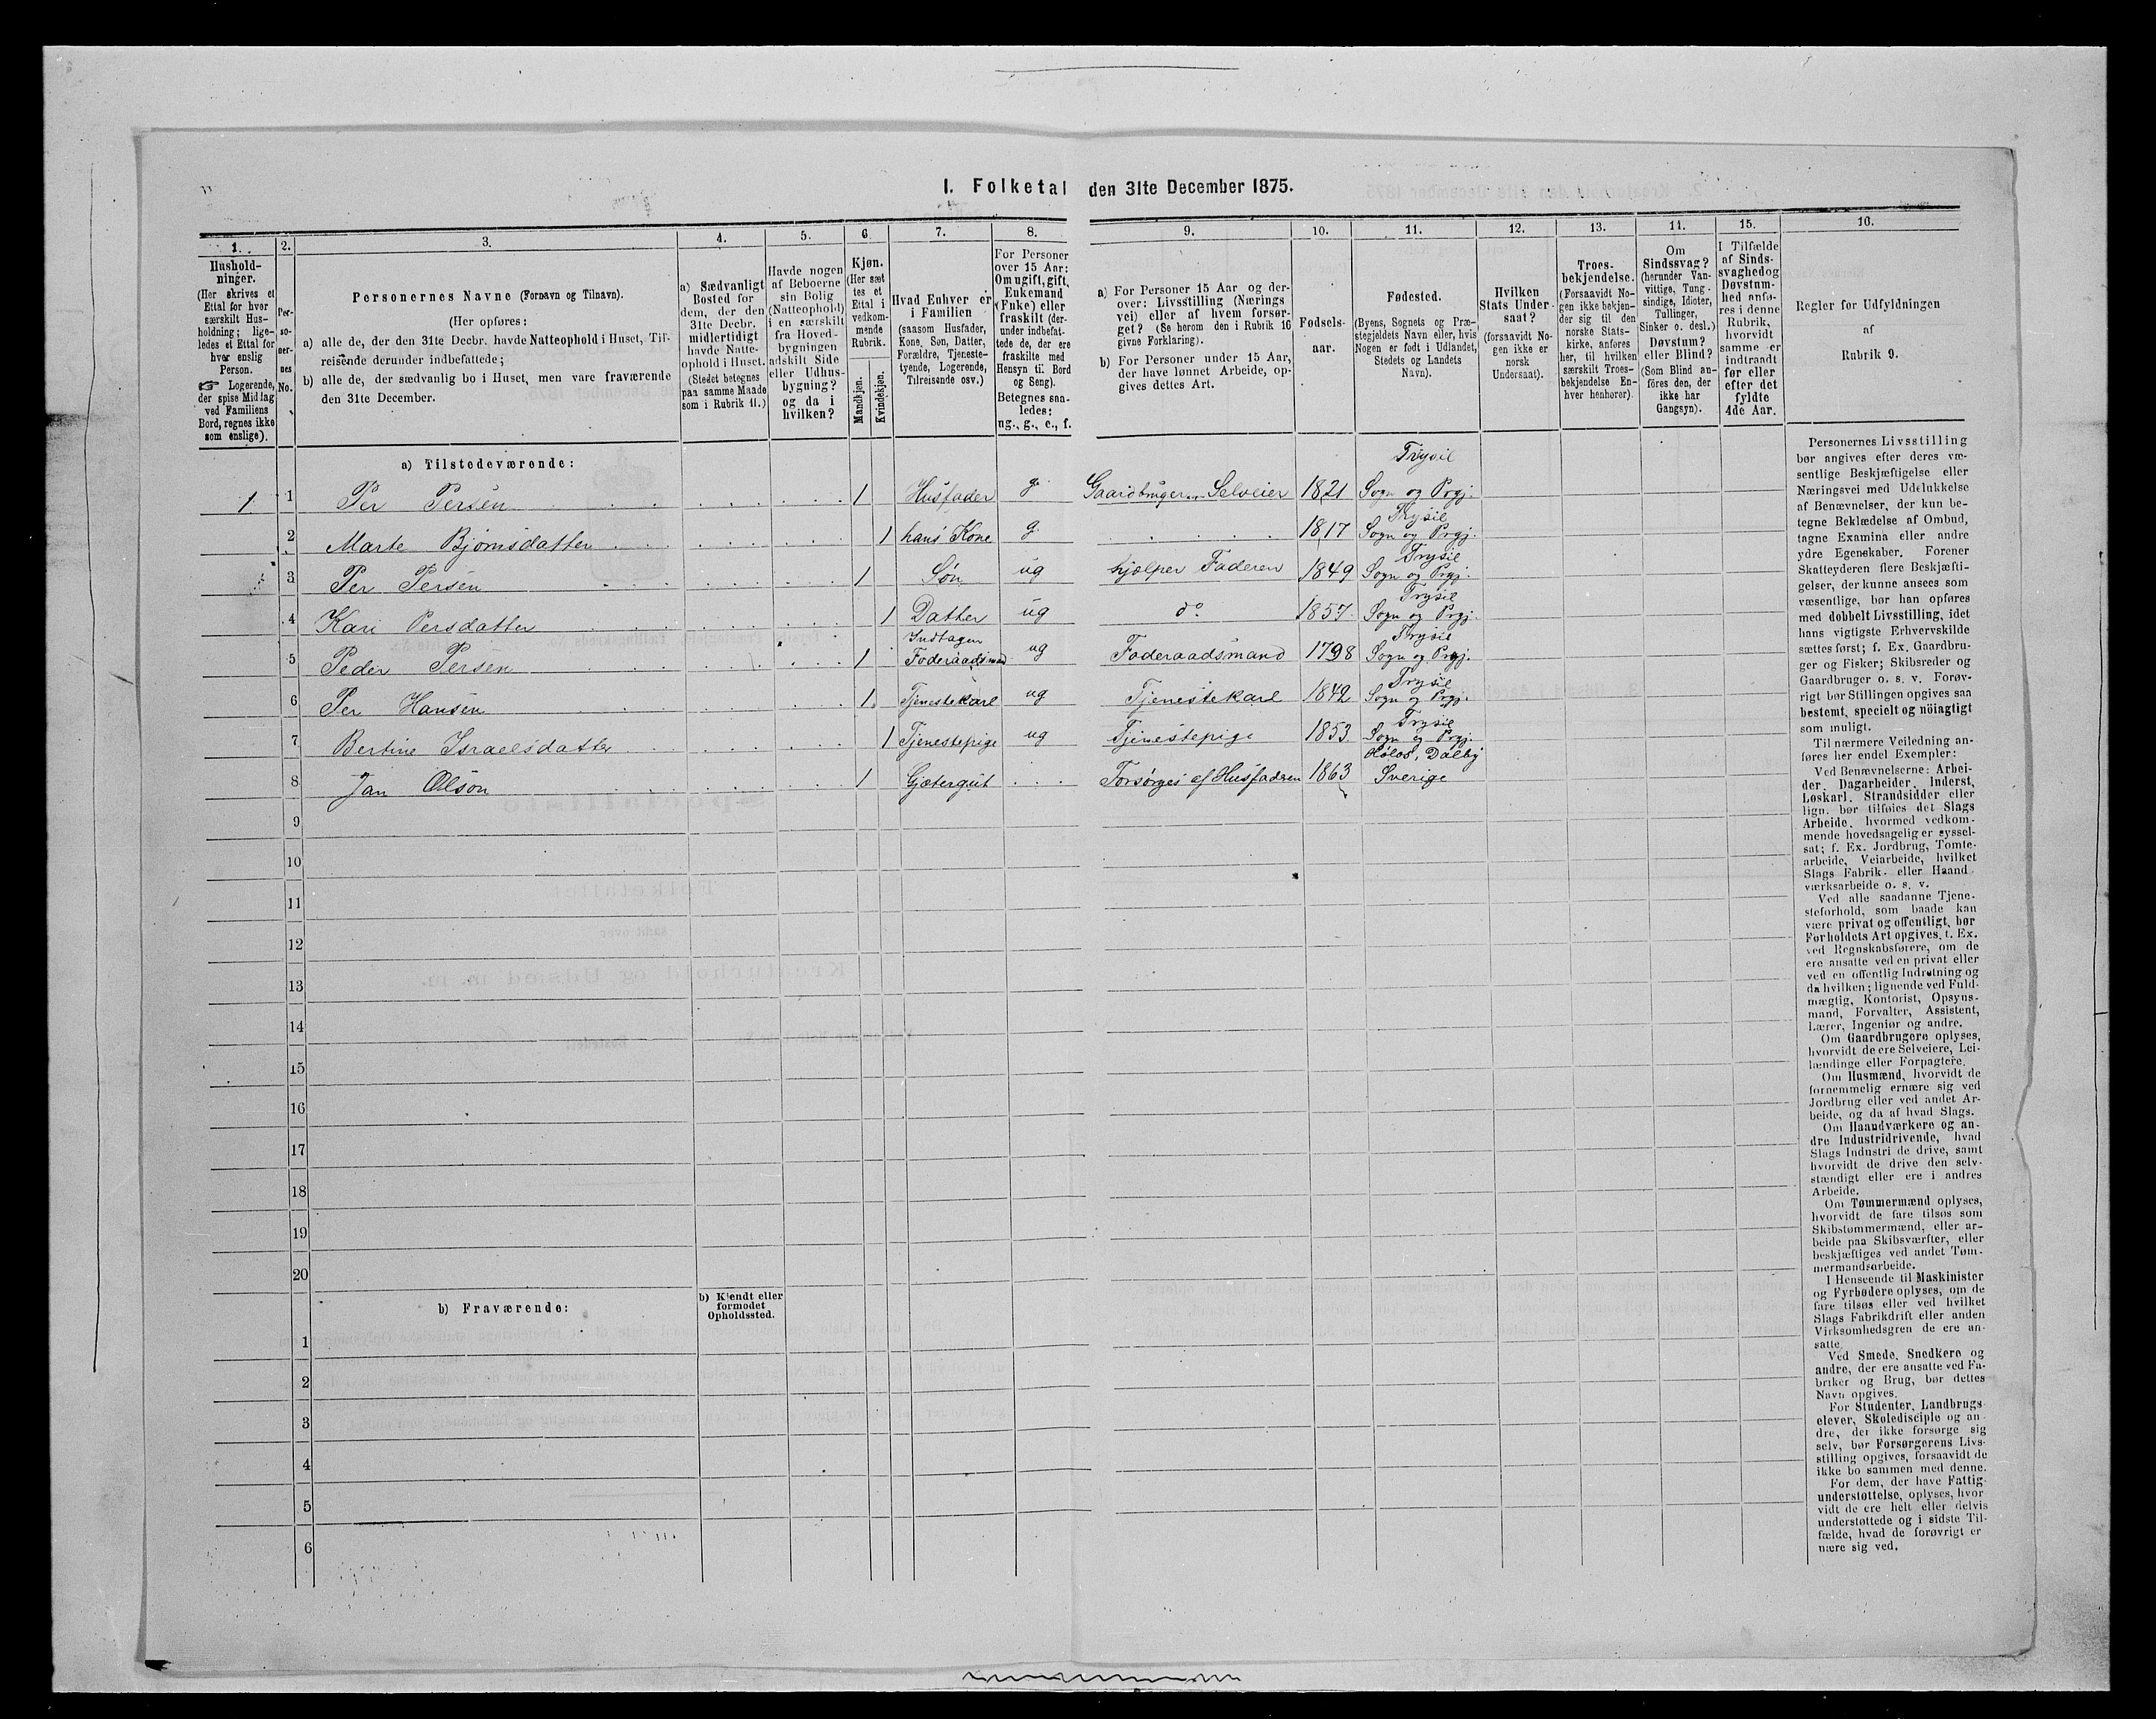 I. Folketal den 31te December 1875.
1.
Hushold-
ninger.
(Her skrives et
Ettal for hver
særskilt Hus-
holdning; lige-
ledes et Ettal for
hver enslig
Person.
☞ Logerende,
der spise Middag
ved Familiens
Bord, regnes ikke
som enslige).
2.
Per-
so-
ner-
nes
No.
3.
Personernes Navne (Fornavn og Tilnavn).
(Her opføres:
a) alle de, der den 31te Decbr. havde Natteophold i Huset, Til-
reisende derunder indbefattede;
b) alle de, der sædvanlig bo i Huset, men vare fraværende
den 31te December.
4.
a) Sædvanligt
Bosted for
dem, der den
31te Decbr.
midlertidigt
havde Natte-
ophold i Huset.
(Stedet betegnes
paa samme Maade
som i Rubrik 11.)
5.
Havde nogen
af Beboerne
sin Bolig
(Natteophold)
i en særskilt
fra Hoved-
bygningen
adskilt Side
eller Udhus-
bygning?
og da i
hvilken?
6.
Kjøn.
(Her sæt
tes et
Ettal i
vedkom-
mende
Rubrik.
Mandkjøn.
Kvindekjøn.
7.
Hvad Enhver er
i Familien
(saasom Husfader,
Kone, Søn, Datter,
Forældre, Tjeneste-
tyende, Logerende,
Tilreisende osv.)
8.
For Personer
over 15 Aar:
Om ugift, gift,
Enkemand
(Enke) eller
fraskilt (der-
under indbefat-
tede de, der ere
fraskilte med
Hensyn til Bord
og Seng).
Betegnes saa-
ledes:
ug., g., e., f.
9.
a) For Personer 15 Aar og der-
over: Livsstilling (Nærings
vei) eller af hvem forsør-
get? (Se herom den i Rubrik 16
givne Forklaring).
b) For Personer under 15 Aar,
der have lønnet Arbeide, op-
gives dettes Art.
10.
Fødsels-
aar.
11.
Fødested.
(Byens, Sognets og Præ-
stegjeldets Navn eller, hvis
Nogen er født i Udlandet,
Stedets og Landets
Navn).
12.
Hvilken
Stats Under-
saat?
(forsaavidt No-
gen ikke er
norsk
Undersaat).
13.
Troes-
bekjendelse.
(Forsaavidt No-
gen ikke bekjen-
der sig til den
norske Stats-
kirke, anføres
her, til hvilken
særskilt Troes-
bekjendelse En-
hver henhører).
11.
Om
Sindssvag?
(herunder Van-
vittige, Tung-
sindige, Idioter,
Tullinger,
Sinker o. desl.)
Døvstum?
eller Blind?
(Som Blind an-
føres den, der
ikke har
Gangsyn).
15.
I Tilfælde
af Sinds-
svaghed og
Døvstum-
hed anfø-
res i denne
Rubrik,
hvorvidt
samme er
indtraadt
før eller
efter det
fyldte
4de Aar.
16.
Regler for Udfyldningen
af
Rubrik 9.
a) Tilstedeværende:
1 1 Per Persen 1 Husfader g. Gaardbruger Selveier 1821 Trysil Sogn og Prgj.
2 Marte Bjørnsdatter 1 hans Kone g. 1817 Trysil Sogn og Prgj.
3 Per Persen 1 Søn ug hjælper Faderen 1849 Trysil Sogn og Prgj.
4 Kari Persdatter 1 Datter ug do 1857 Trysil Sogn og Prgj.
5 Peder Persen 1 Indtagen Foderaadsmand ug Foderaadsmand 1798 Trysil Sogn og Prgj.
6 Per Hansen 1 Tjenestekarl ug Tjenestekarl 1842 Trysil Sogn og Prgj.
7 Bertine Israelsdatter 1 Tjenestepige ug Tjenestepige 1853 Trysil Sogn og Prgj.
8 Jan Olson 1 Gjætergut Forsørges af Husfaderen 1863 Dalby Sverige
9
10
11
12
13
14
15
16
17
18
19
20
b) Fraværende:
b) Kjendt eller
formodet
Opholdssted.
1
2
3
4
5
6
Personernes Livsstilling
bør angives efter deres væ-
sentlige Beskjæftigelse eller
Næringsvei med Udelukkelse
af Benævnelser, der kun be-
tegne Beklædelse af Ombud,
tagne Examina eller andre
ydre Egenskaber. Forener
Skatteyderen flere Beskjæfti-
gelser, der kunne ansees som
væsentlige, bør han opføres
med dobbelt Livsstilling, idet
hans vigtigste Erhvervskilde
sættes først; f. Ex. Gaardbru-
ger og Fisker; Skibsreder og
Gaardbruger o. s. v. Forøv-
rigt bør Stillingen opgives saa
bestemt, specielt og nöiagtigt
som muligt.
Til nærmere Veiledning an-
føres her endel Exempler:
Ved Benævnelserne: Arbei-
der, Dagarbeider, Inderst,
Løskarl, Strandsidder eller
lign. bør tilføies det Slags
Arbeide, hvormed vedkom-
mende hovedsagelig er syssel-
sat; f. Ex. Jordbrug, Tomte-
arbeide, Veiarbeide, hvilket
Slags Fabrik- eller Haand-
værksarbeide o. s. v.
Ved alle saadanne Tjene-
steforhold, som baade kan
være privat og offentligt, bør
Forholdets Art opgives, t. Ex.
ved Regnskabsførere, om de
ere ansatte ved en privat eller
ved en offentlig Indretning og
da hvilken; lignende ved Fuld-
mægtig, Kontorist, Opsyns-
mand, Forvalter, Assistent,
Lærer, Ingeniør og andre.
Om Gaardbrugere oplyses,
hvorvidt de ere Selveiere, Lei-
lændinge eller Forpagtere.
Om Husmænd, hvorvidt de
fornemmelig ernære sig ved
Jordbrug eller ved andet Ar-
beide, og da af hvad Slags.
Om Haandværkere og an-
dre Industridrivende, hvad
Slags Industri de drive, samt
hvorvidt de drive den selv-
stændigt eller ere i andres
Arbeide.
Om Tømmermænd oplyses,
hvorvidt de fare tilsøs som
Skibstømmermænd, eller ar-
beide paa Skibsværfter, eller
beskjæftiges ved andet Tøm-
mermandsarbeide.
I Henseende til Maskinister
og Fyrbødere oplyses, om de
fare tilsøs eller ved hvilket
Slags Fabrikdrift eller anden
Virksomhedsgren de ere an-
satte.
Ved Smede, Snedkere og
andre, der ere ansatte ved Fa-
briker og Brug, bør dettes
Navn opgives.
For Studenter, Landbrugs-
elever, Skoledisciple og an-
dre, der ikke forsørge sig
selv, bør Forsørgerens Livs-
stilling opgives, forsaavidt de
ikke bo sammen med denne.
For dem, der have Fattig-
understøttelse, oplyses, hvor
vidt de ere helt eller delvis
understøttede og i sidste Til-
fælde, hvad de forøvrigt er
nære sig ved.